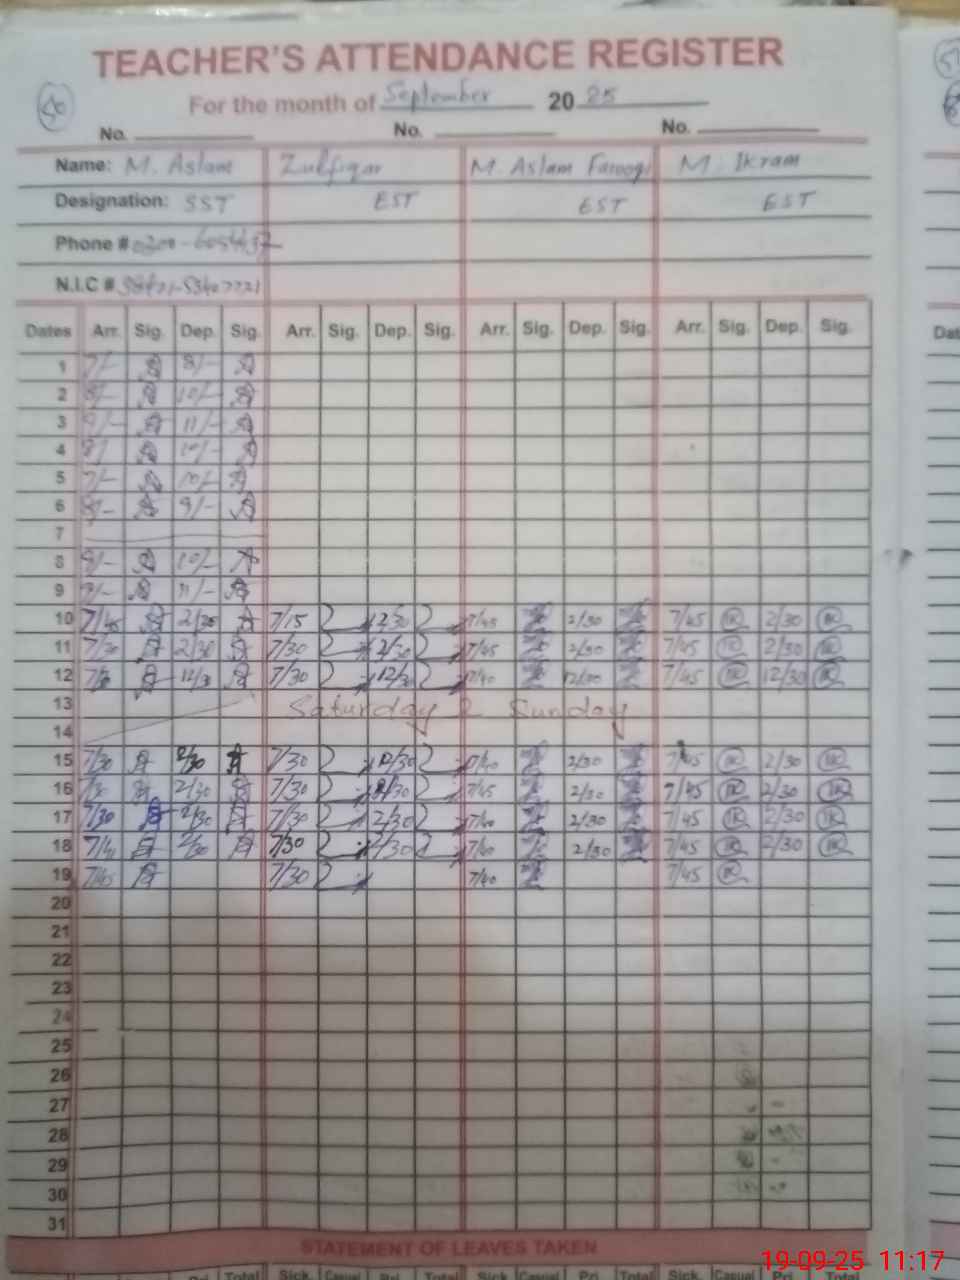 TEACHER'S ATTENDANCE REGISTER
50
For the month of September 2025
No. No. No.
Name: M. Aslam Zulfiqar M. Aslam Farooqi M. Ikram
Designation: SST EST EST EST
Phone #
N.I.C #
Dates Arr. Sig. Dep. Sig. Arr. Sig. Dep. Sig. Arr. Sig. Dep. Sig. Arr. Sig. Dep. Sig.
1 7/- 8/-
2 8/- 10/-
3 9/- 11/-
4 8/ 10/-
5 7/- 10/-
6 8/- 9/-
7
8 8/- 10/-
9 9/- 11/-
10 7/45 2/30 7/15 2/30 7/45 2/30 7/45 2/30
11 7/30 2/30 7/30 2/30 7/45 2/30 7/45 2/30
12 7/30 12/30 7/30 12/30 7/40 12/30 7/45 12/30
13 Saturday & Sunday
14
15 7/30 2/30 7/30 2/30 7/40 2/30 7/45 2/30
16 2/30 7/30 2/30 7/45 2/30 7/45 2/30
17 7/30 2/30 7/30 2/30 7/40 2/30 7/45 2/30
18 2/30 7/30 2/30 7/40 2/30 7/45 2/30
19 7/45 7/30 7/40 7/45
20
21
22
23
24
25
26
27
28
29
30
31
STATEMENT OF LEAVES TAKEN
Total Sick. Casual Total Sick Casual Pri. Total Sick. Casual Pri. Total
19-09-25 11:17